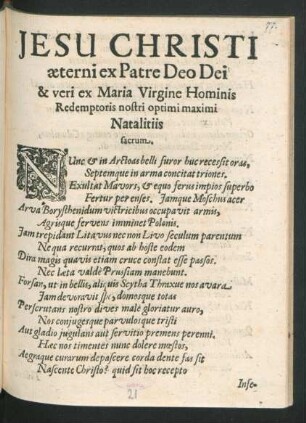 77.
JESU CHRISTI
æterni ex Patre Deo Dei
& veri ex Maria Virgine Hominis
Redemptoris nostri optimi maximi
Natalitiis
sacrum.
NUnc & in Arctoas belli furor huc recessit oras,
Septemque in arma concitat triones.
Exultat Mavors, & equo ferus impios superbo
Fertur per enses. Jamque Moschus acer
Arva Borysthenidum victricibus occupavit armis,
Agrisque fervens imminet Polonis.
Jam trepidant Litavus nec non Livo seculum parentum
Ne qua recurrat, quos ab hoste eodem
Dira magis quavis etiam cruce constat esse passos.
Nec læta valdè Prussiam manebunt.
Forsan, ut in bellis, aliquis Scytha Thraxve nos avara
Jam devoravit spe, domosque totas
Perscrutans nostro dives malè gloriatur auro,
Nos conjugesque parvulosque tristi
Aut gladio jugulans aut servitio premens perenni.
Hæc nos timentes nunc dolere mœstos,
Aegraque curarum depascere corda dente fas sit
Nascente Christo? quid sit hoc recepto
Infe-
21